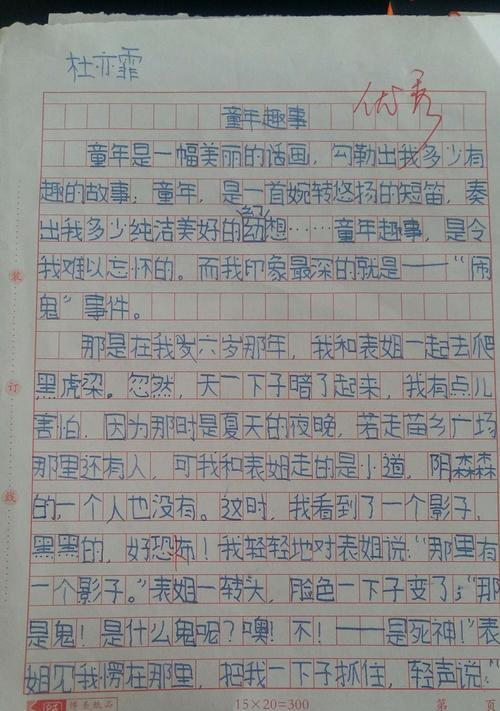 杜亦霏
优秀
童年趣事
童年是一幅美丽的话画,勾勒出我多少有
趣的故事;童年,是一首婉转悠扬的短笛,奏
出我多少纯洁美好的幻想……童年趣事,是令
我难以忘怀的。而我印象最深的就是——“闹
鬼”事件。
那是在我岁六岁那年,我和表姐一起去爬
黑虎梁。忽然,天一下子暗了起来,我有点儿
害怕,因为那时是夏天的夜晚,若走苗乡广场
那里还有人,可我和表姐走的是小道,阴森森
的,一个人也没有。这时,我看到了一个影子,
黑黑的,好恐怖!我轻轻地对表姐说:“那里有
一个影子。”表姐一转头,脸色一下子变了:“那
是鬼!是什么鬼呢?噢!不!——是死神!”表
姐见我愣在那里,把我一下子抓住,轻声说:“
装
订
线
博圣纸品
15×20=300
第 页